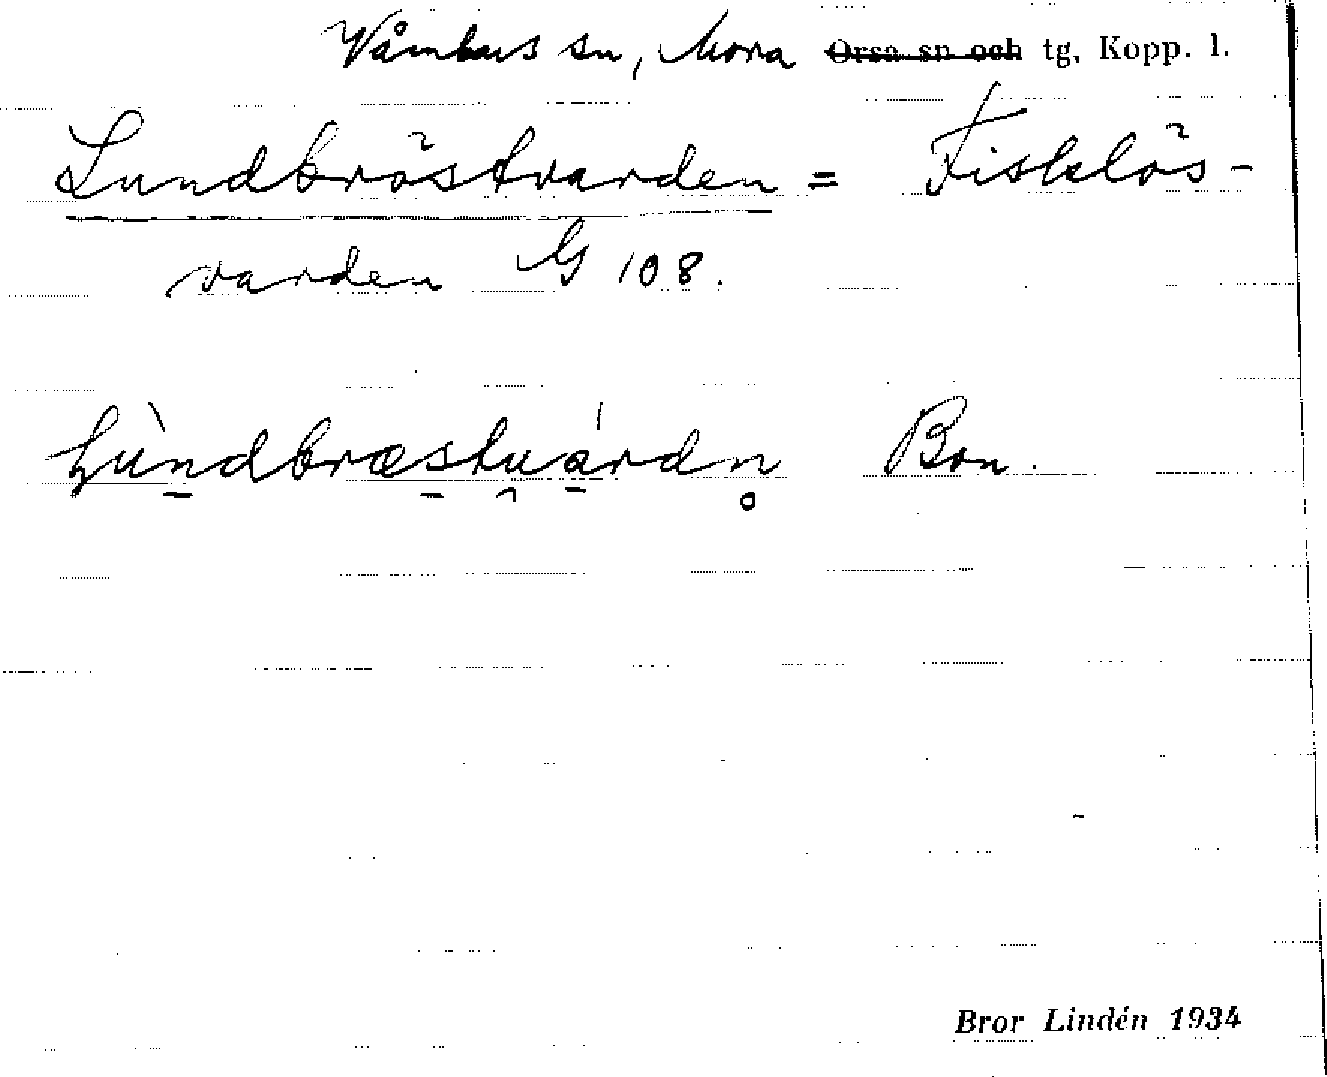 Våmhus sn, Mora Orsa sn och tg, Kopp. l.
Lundbröstvarden = Fisklös-
varden G 108.
Lùndbræstuárdn̥ Bon.
Bror Lindén 1934